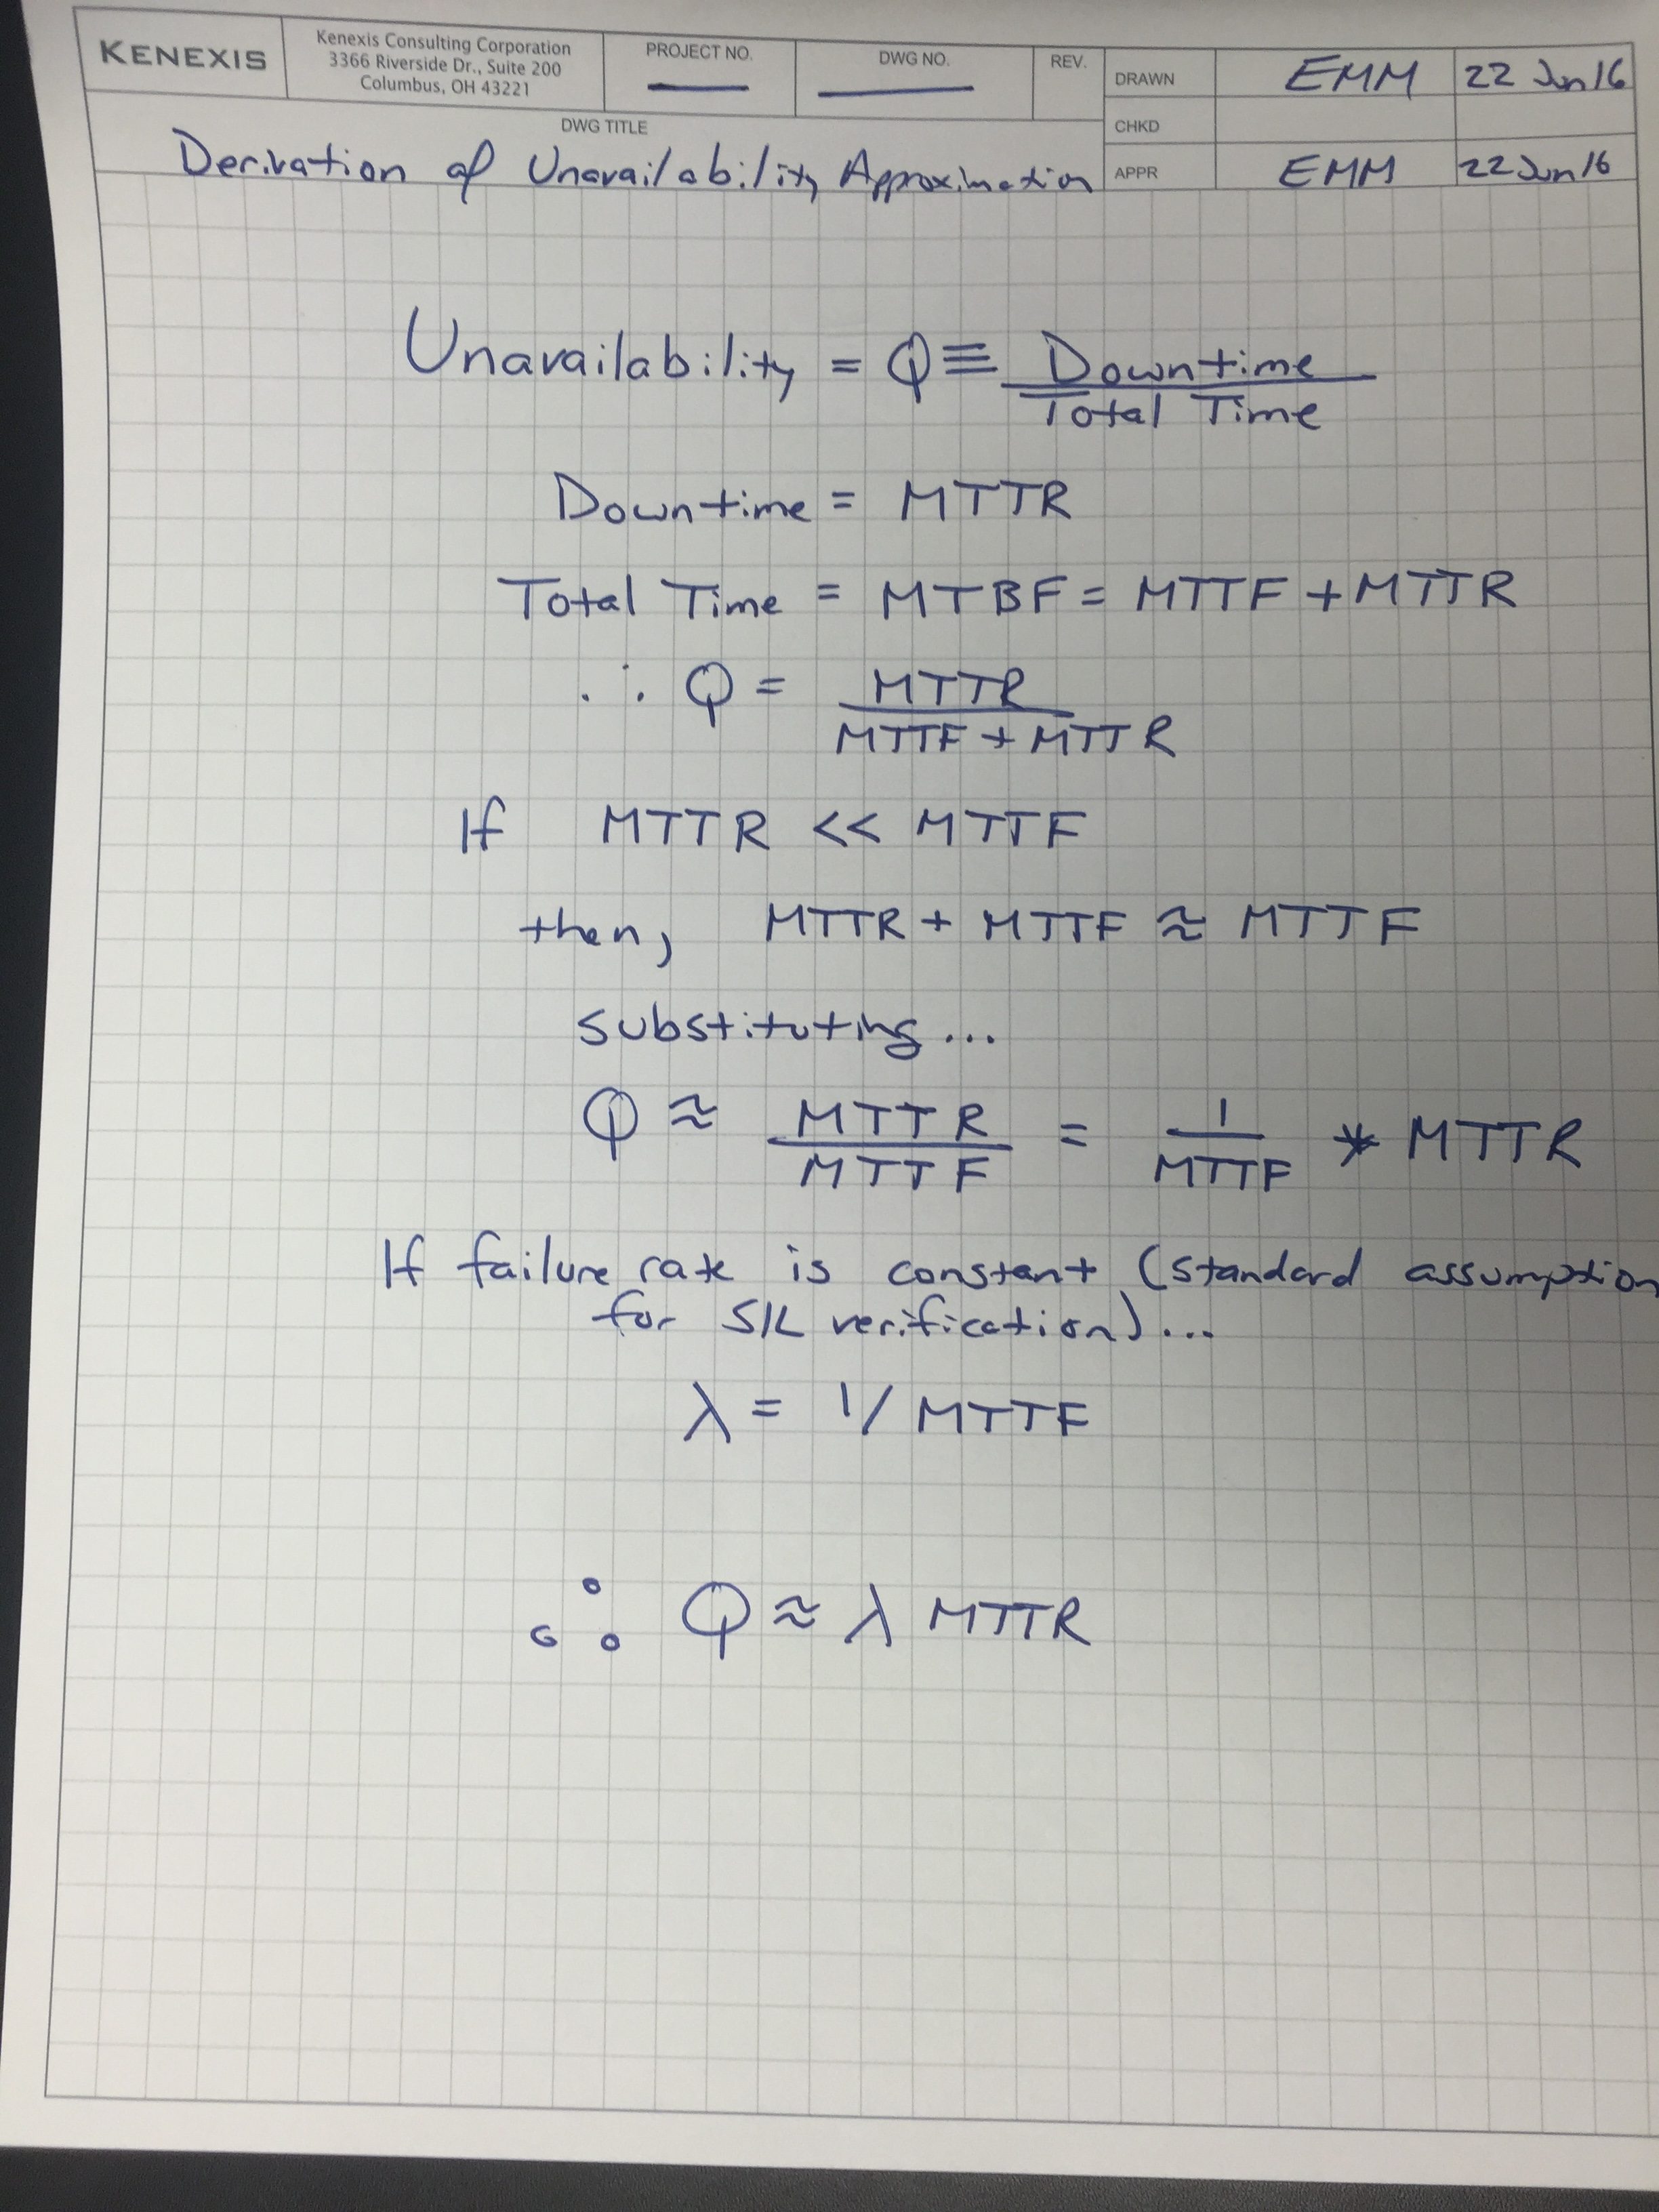 KENEXIS
Kenexis Consulting Corporation
3366 Riverside Dr., Suite 200
Columbus, OH 43221
PROJECT NO.
DWG NO.
REV.
DRAWN EMM 22 Jun 16
CHKD
APPR EMM 22 Jun 16
DWG TITLE
Derivation of Unavailability Approximation
Unavailability = Q ≡ Downtime / Total Time
Downtime = MTTR
Total Time = MTBF = MTTF + MTTR
∴ Q = MTTR / MTTF + MTTR
If MTTR << MTTF
then, MTTR + MTTF ≈ MTTF
substituting...
Q ≈ MTTR / MTTF = 1 / MTTF * MTTR
If failure rate is constant (standard assumption
for SIL verification)...
λ = 1/MTTF
∴ Q ≈ λ MTTR